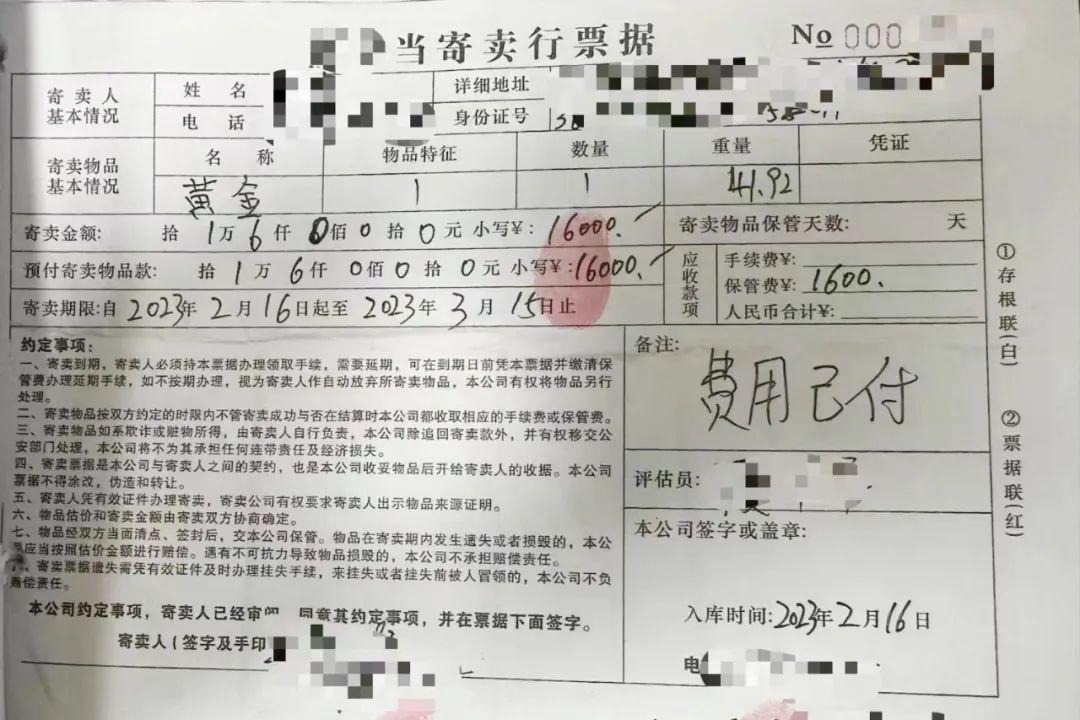 当寄卖行票据 No 000
寄卖人基本情况 姓名 详细地址
电话 身份证号
寄卖物品基本情况 名称 物品特征 数量 重量 凭证
黄金 1 1 41.92
寄卖金额: 拾 1万 6仟 0佰 0拾 0元 小写¥: 16000. 寄卖物品保管天数: 天
预付寄卖物品款: 拾 1万 6仟 0佰 0拾 0元 小写¥: 16000.
应收款项 手续费¥:
保管费¥: 1600.
人民币合计¥:
寄卖期限:自2023年2月16日起至2023年3月15日止
约定事项:
一、寄卖到期,寄卖人必须持本票据办理领取手续,需要延期,可在到期日前凭本票据并缴清保
管费办理延期手续,如不按期办理,视为寄卖人作自动放弃所寄卖物品,本公司有权将物品另行
处理。
二、寄卖物品按双方约定的时限内不管寄卖成功与否在结算时本公司都收取相应的手续费或保管费。
三、寄卖物品如系欺诈或赃物所得,由寄卖人自行负责,本公司除追回寄卖款外,并有权移交公
安部门处理,本公司将不为其承担任何连带责任及经济损失。
四、寄卖票据是本公司与寄卖人之间的契约,也是本公司收妥物品后开给寄卖人的收据。本公司
票据不得涂改,伪造和转让。
五、寄卖人凭有效证件办理寄卖,寄卖公司有权要求寄卖人出示物品来源证明。
六、物品估价和寄卖金额由寄卖双方协商确定。
七、物品经双方当面清点、签封后,交本公司保管。物品在寄卖期内发生遗失或者损毁的,本公
应当按照估价金额进行赔偿。遇有不可抗力导致物品损毁的,本公司不承担赔偿责任。
、寄卖票据遗失需凭有效证件及时办理挂失手续,来挂失或者挂失前被人冒领的,本公司不负
赔偿责任。
本公司约定事项,寄卖人已经审 同意其约定事项,并在票据下面签字。
寄卖人(签字及手印
备注:
费用已付
评估员:
本公司签字或盖章:
入库时间:2023年2月16日
电
①存根联(白)
②票据联(红)